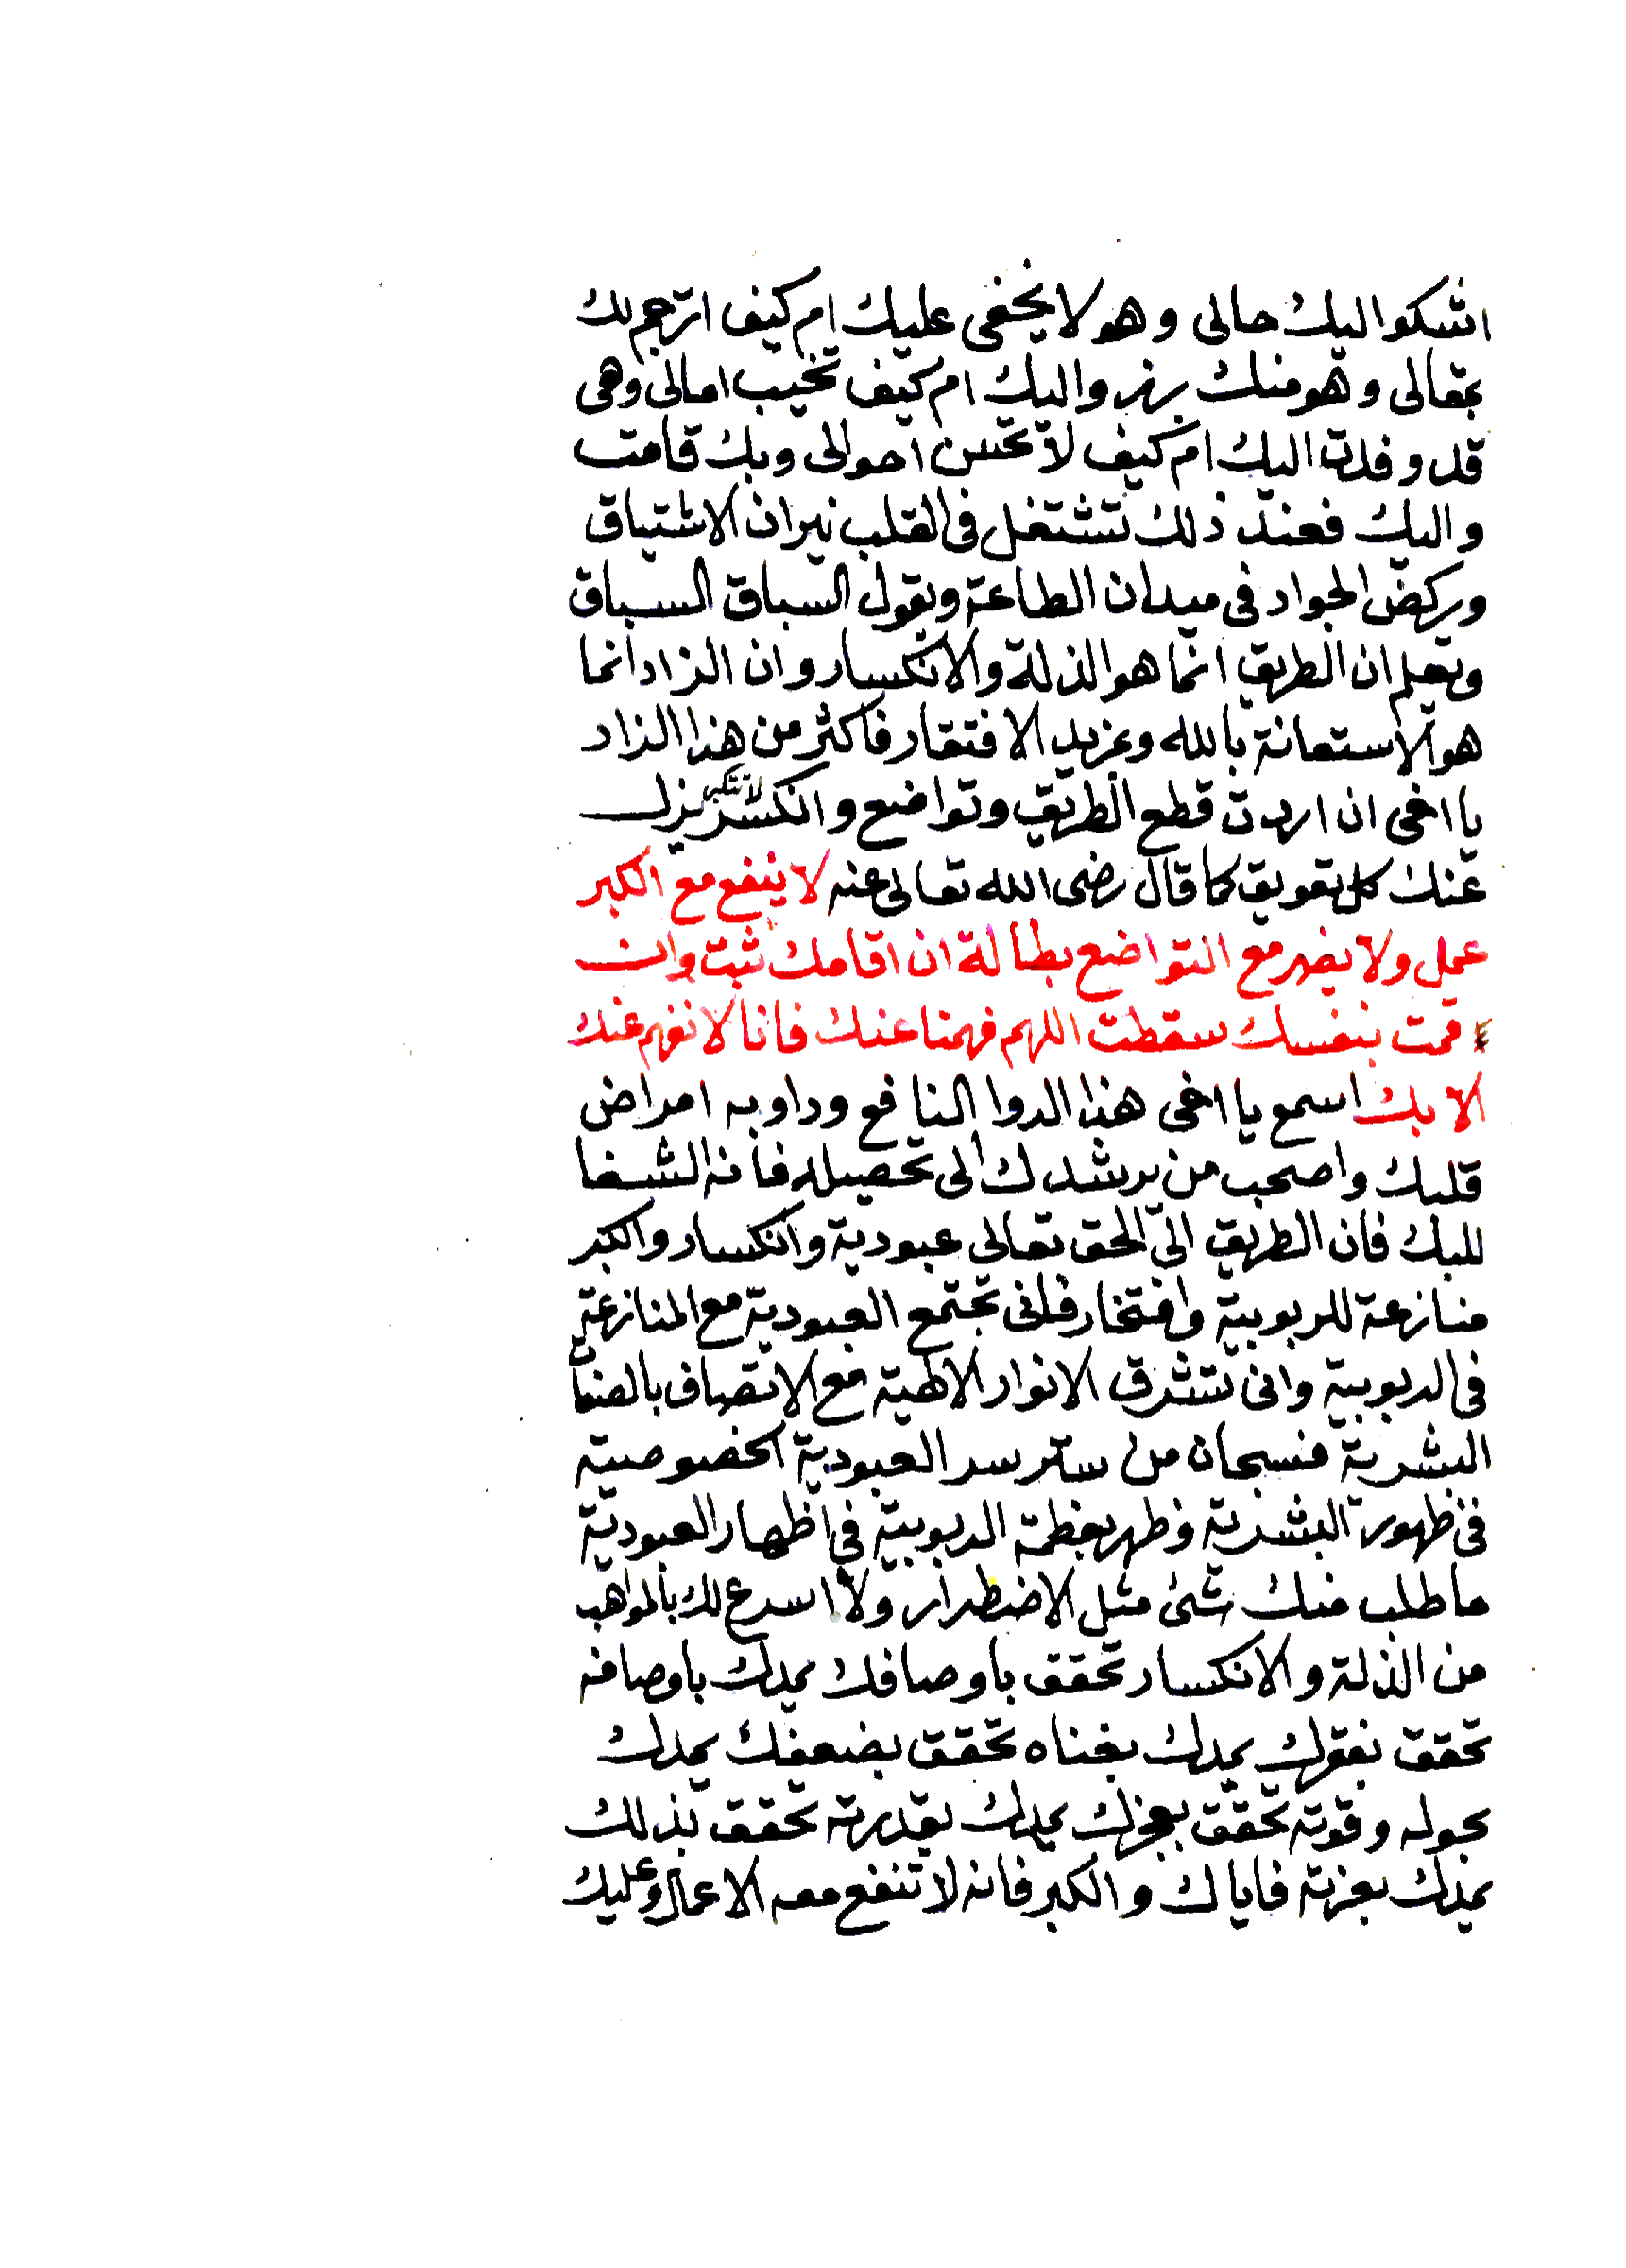 اشكوا اليك حالى وهو لا يخفى عليك ام كيف اترجم لك
بمقالى وهو منك برز واليك ام كيف تخيب امالى وهى
قد وفدت اليك ام كيف لا تحسن احوالى وبك قامت
واليك فعند ذلك تشتغل فى القلب نيران الاشتياق
ويركض الجواد فى ميدان الطاعة ويقول السباق السباق
ويعلم ان الطريق انما هو الذلة والانكسار وان الزاد انما
هو الاستعانة بالله ومزيد الافتقار فاكثر من هذا الزاد
يا اخى ان اردت قطع الطريق وتواضع وانكسر لا تتكبر يزل
عنك كل تعويق كما قال رضى الله تعالى عنه لا ينفع مع الكبر
عمل ولا يضر مع التواضع بطالة ان اقامك ثبت وان
قمت بنفسك سقطت اللهم فهمنا عنك فانا لا نفهم عنك
الا بك اسمع يا اخى هذا الدوا النافع وداوبه امراض
قلبك واصحب من يرشدك الى تحصيله فانه الشفا
للبك فان الطريق الى الحق تعالى عبودية وانكسار والكبر
منازعة للربوبية وافتخار فانى تجتمع العبودية مع المنازعة
فى الربوبية وانى تشرق الانوار الالهية مع الاتصاف بالصفات
البشرية فسبحان من ستر سر العبودية الخصوصية
فى ظهور البشرية وظهر بعظمة الربوبية فى اظهار العبودية
ما طلب منك شئ مثل الاضطرار ولا اسرع لك بالمواهب
من الذلة والانكسار تحقق باوصافك يمدك باوصافه
تحقق بفقرك يمدك بغناه تحقق بضعفك يمدك
بحوله وقوته تحقق بعجزك يمدك بقدرته تحقق بذلك
يمدك بعزته فاياك والكبر فانه لا تنفع معه الاعمال وعليك